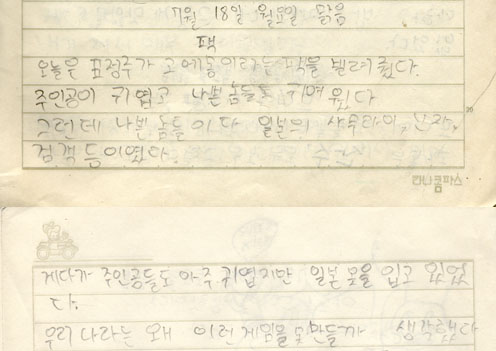 7월 18일 월요일 맑음
팩
오늘은 표정주가 고에몽이라는 팩을 빌려 줬다.
주인공이 귀엽고 나쁜놈들도 귀여웠다
그런데 나쁜 놈들이 다 일본의 사무라이, 닌자,
검객 등이였다.
미니콤파스
게다가 주인공들도 아주 귀엽지만 일본 옷을 입고 있었
다.
우리 나라는 왜 이런 게임을 못만들까 생각했다